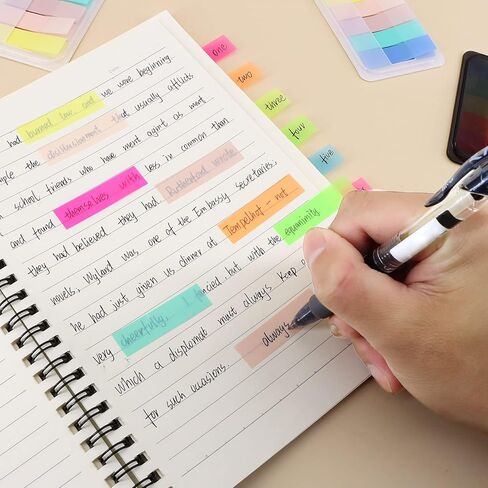 had burned low and we were beginning
the disillusionment that usually afflicts
school friends who have ment agirt as ment
and found themselves with less in common than
they had believed they had. Rutherford wrote
novels, Wyland was one of the Embassy secretaries,
he had just given us dinner at Tempelhof - not
very cheerfully, I fancied, but with the equanimity
which a diplomat must always keep
for such occasions. always
one
two
three
four
five